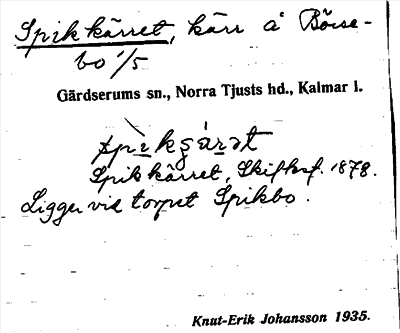 Spikkärret, kärr å Börse-
bo 1/5
Gärdserums sn., Norra Tjusts hd., Kalmar l.
Spikkärret, Skifteskf. 1878.
Ligger vid torpet Spikbo.
Knut-Erik Johansson 1935.